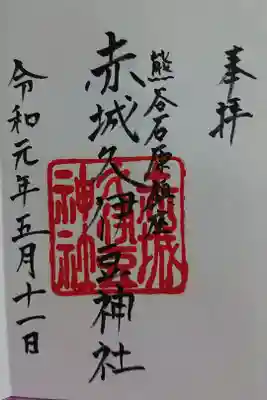 奉拝
熊谷石原鎮座
赤城久伊豆神社
令和元年五月十一日